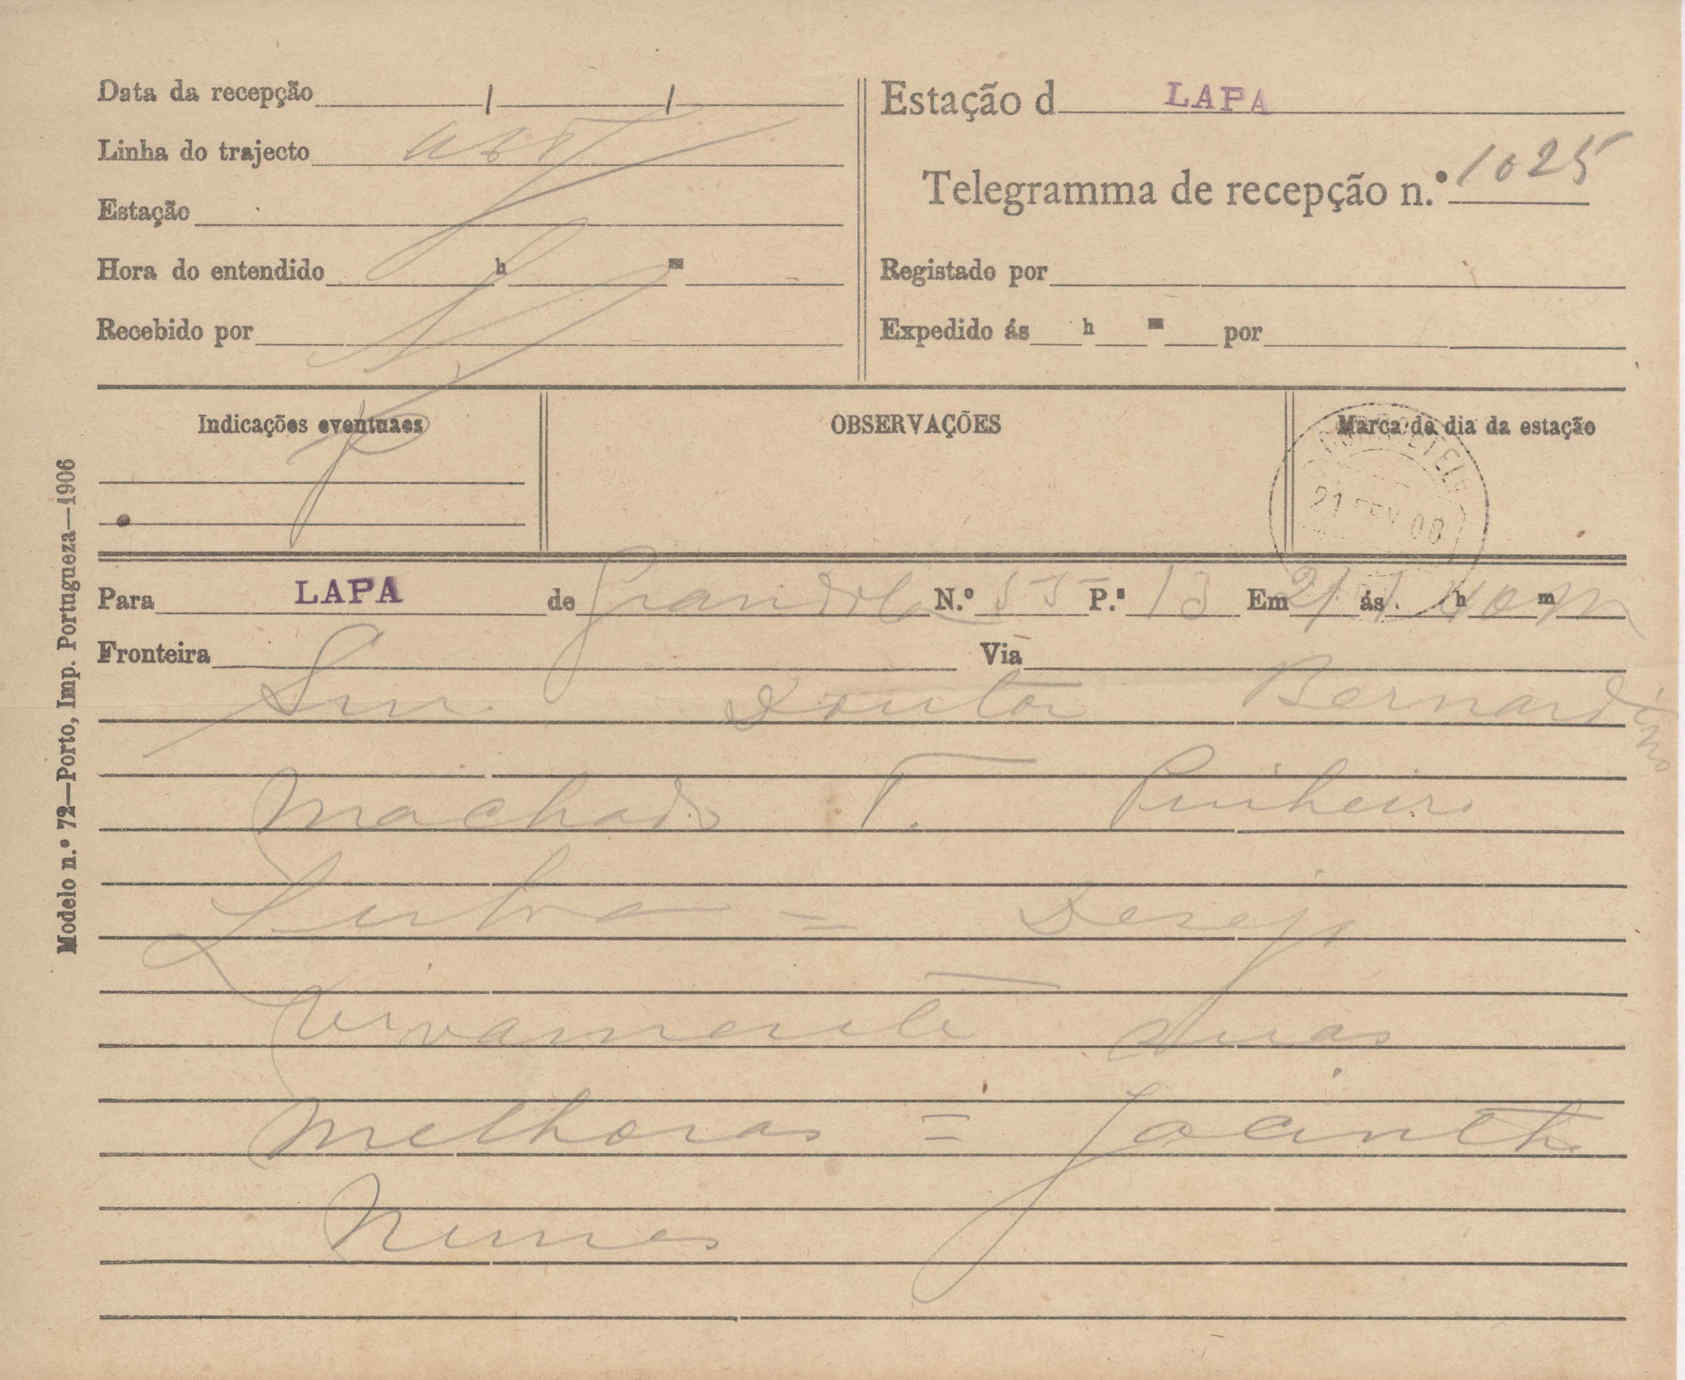 Data da recepção / /
Linha do trajecto
Estação
Hora do entendido h m
Recebido por
Estação d LAPA
Telegramma de recepção n.º 1025
Registado por
Expedido ás h m por
Indicações eventuaes
OBSERVAÇÕES
Marca do dia da estação
21 FEV 08
Para LAPA de Grandola N.º 55 P.s 13 Em 21 ás h m
Fronteira Via
Snr. Doutor Bernardino
Machado T. Pinheiro
Lisboa = Desejo
Vivamente suas
melhoras = Jacintho
Nunes
Modelo n.º 72—Porto, Imp. Portugueza—1906